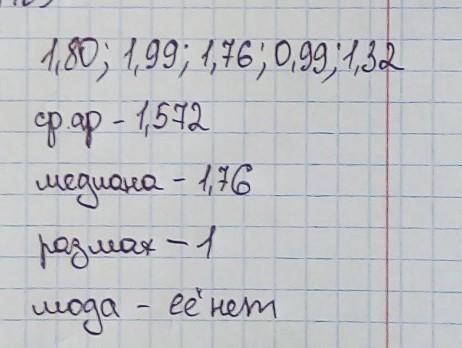 1,80; 1,99; 1,76; 0,99; 1,32
ср.ар - 1,572
медиана - 1,76
размах - 1
мода - её нет